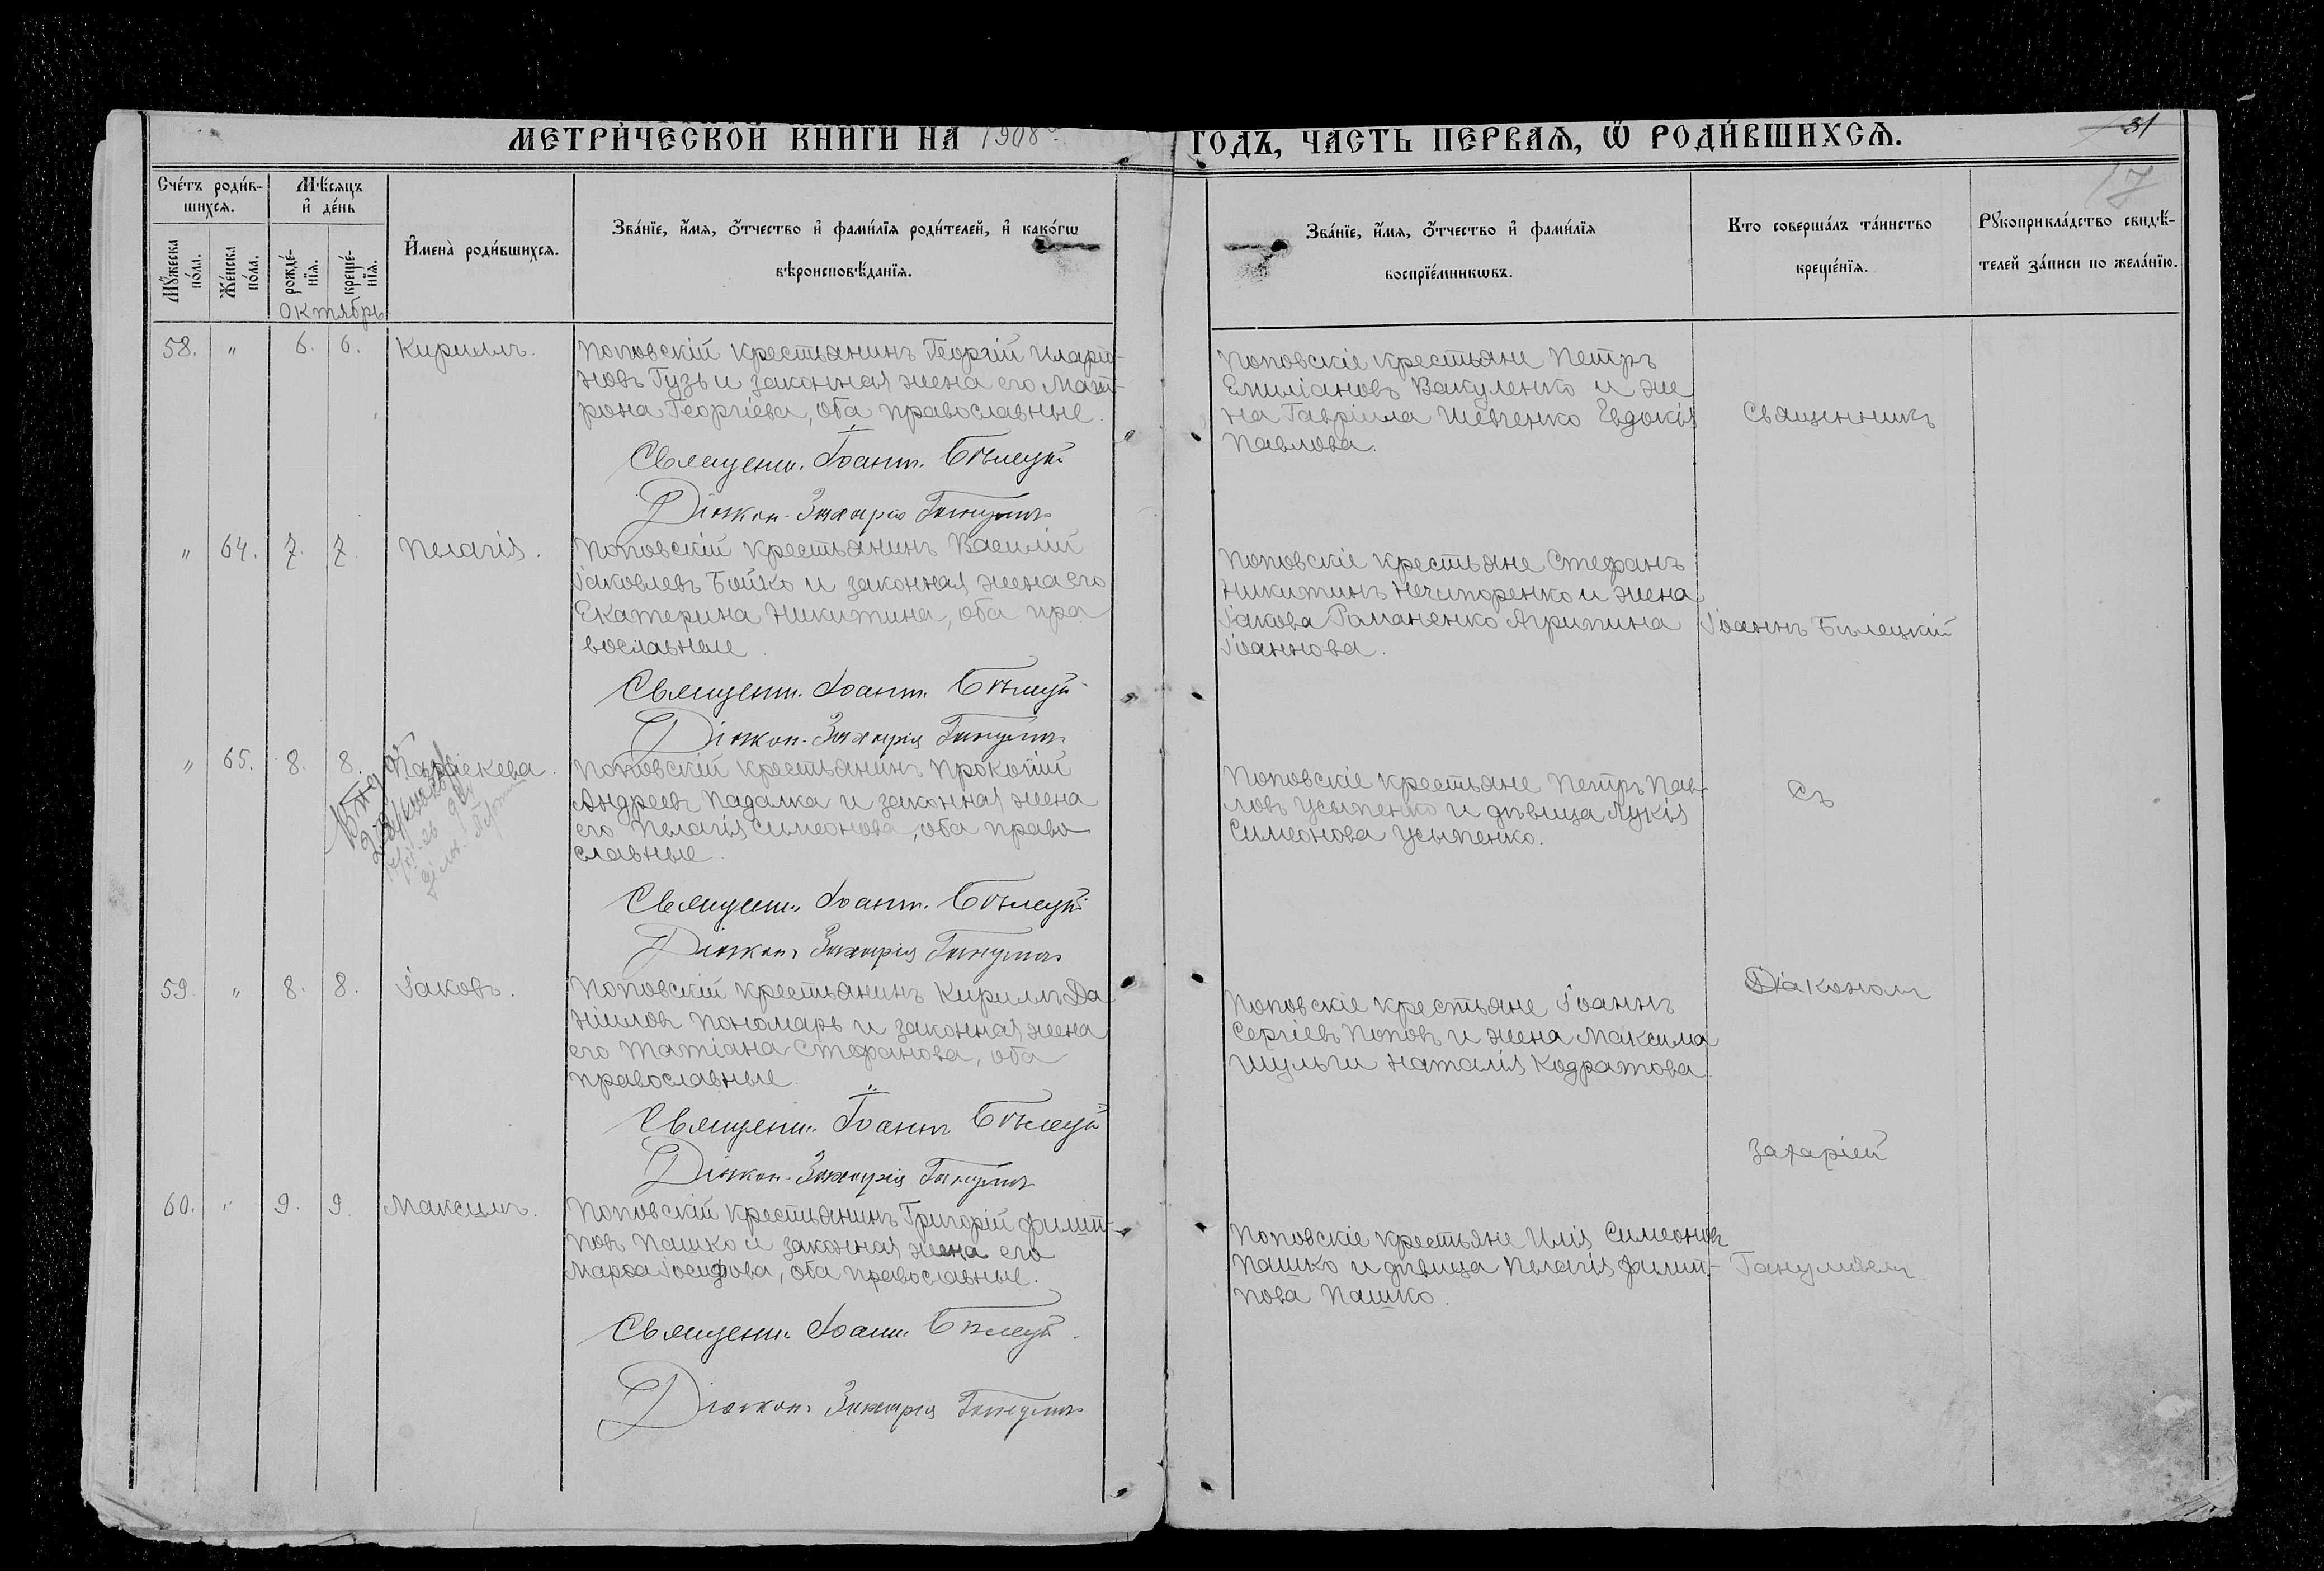 МЕТРИЧЕСКОЙ КНИГИ НА 1908 ГОДЪ, ЧАСТЬ ПЕРВАЯ, Ѿ РОДИВШИХСЯ.
31
17
Счетъ родив-
шихся.
Мужеска
пола.
Женска
пола.
Мѣсяцъ
и день
рожде-
нія.
креще-
нія.
Имена родившихся.
Званіе, имя, отчество и фамилія родителей, и какогѡ
вѣроисповѣданія.
Званіе, имя, отчество и фамилія
воспріемникѡвъ.
Кто совершалъ таинство
крещенія.
Рукоприкладство свидѣ-
телей записи по желанію.
Октябрь
58. " 6. 6. Кириллъ.
Поповскій крестьянинъ Георгій Иларіо-
новъ Гузь и законная жена его Мат-
рона Георгіева, оба православные.
Священн. Іоанн. Бѣлецкі
Діакон. Захарія Ганул
Поповскіе крестьяне Петръ
Емиліановъ Вакуленко и же
на Гавріила Шевченко Евдокія
Павлова.
Священникъ
" 64. 7. 7. Пелагія.
Поповскій крестьянинъ Василій
Іаковлевъ Бойко и законная жена его
Екатерина Никитина, оба пра
вославные.
Священн. Іоанн. Бѣлецкі
Діакон. Захарія Ганул
Поповскіе крестьяне Стефанъ
Никитинъ Нечипоренко и жена
Іакова Романенко Агрипина
Іоаннова.
Іоаннъ Бѣлецкій
" 65. 8. 8. Параскева.
Поповскій крестьянинъ Прокопій
Андреевъ Падалка и законная жена
его Пелагія Симеонова, оба право
славные.
Священн. Іоанн. Бѣлецкі
Діакон. Захарія Ганул
Поповскіе крестьяне Петръ Пав-
ловъ Усыпенко и дѣвица Лукія
Симеонова Усыпенко.
Съ
59. " 8. 8. Іаковъ.
Поповскій крестьянинъ Кириллъ Да
ніиловъ Пономарь и законная жена
его Татіана Стефанова, оба
православные.
Священн. Іоаннъ Бѣлецкі
Діакон. Захарія Ганул
Поповскіе крестьяне Іоаннъ
Сергіевъ Поповъ и жена Максима
Шульги Наталія Кодратова.
Діакономъ
Захаріей
60. " 9. 9. Максимъ.
Поповскій крестьянинъ Григорій Филип-
повъ Пашко и законная жена его
Марѳа Іосифова, оба православные.
Священн. Іоанн. Бѣлецкі
Діакон. Захарія Ганул
Поповскіе крестьяне Илія Симеоновъ
Пашко и дѣвица Пелагія Филип-
пова Пашко.